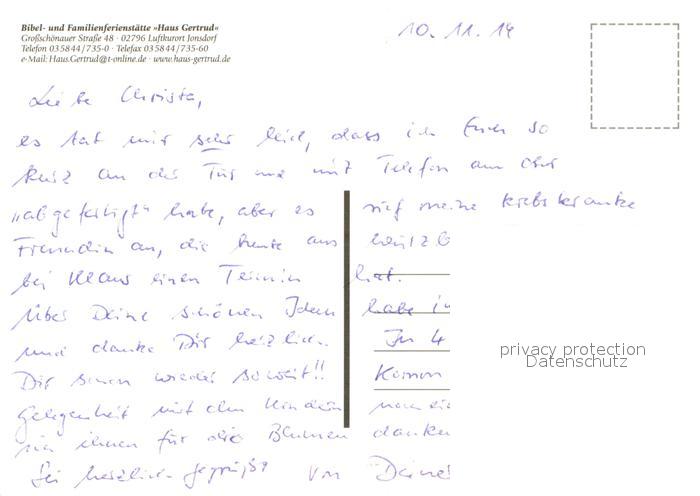 Bibel- und Familienferienstätte »Haus Gertrud«
Großschönauer Straße 48 · 02796 Luftkurort Jonsdorf
Telefon 035844/735-0 · Telefax 035844/735-60
e-Mail: Haus.Gertrud@t-online.de · www.haus-gertrud.de
10.11.14
Liebe Christa,
es tut mir sehr leid, dass ich Euch so
kurz an der Tür und mit Telefon am Ohr
„abgefertigt" habe, aber es rief meine krebskranke
Freundin an, die heute aus
bei Klaus einen Termin hat.
über Deine schönen habe
und danke Dir herzlich. In 4
Dir schon wieder soweit!!
Gelegenheit mit den Kindern
ihnen für die Blumen danken
Sei herzlich gegrüßt von Deiner
privacy protection
Datenschutz